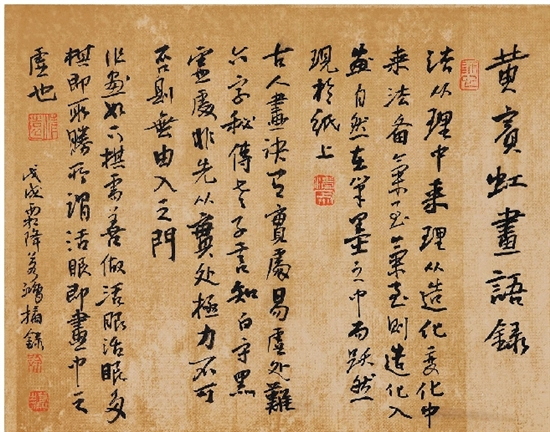 黄賓虹畫語録
法从理中来理从造化变化中
来法备氣至氣至則造化入
画自然在筆墨之中而跃然
現於纸上
古人畫訣有實處易虚处難
六字秘傳老子言知白守黑
虚處非先从實处極力不可
否則無由入之門
作画如下棋需善做活眼活眼多
棋即取勝所謂活眼即畫中之
虚也
戊戌霜降
録